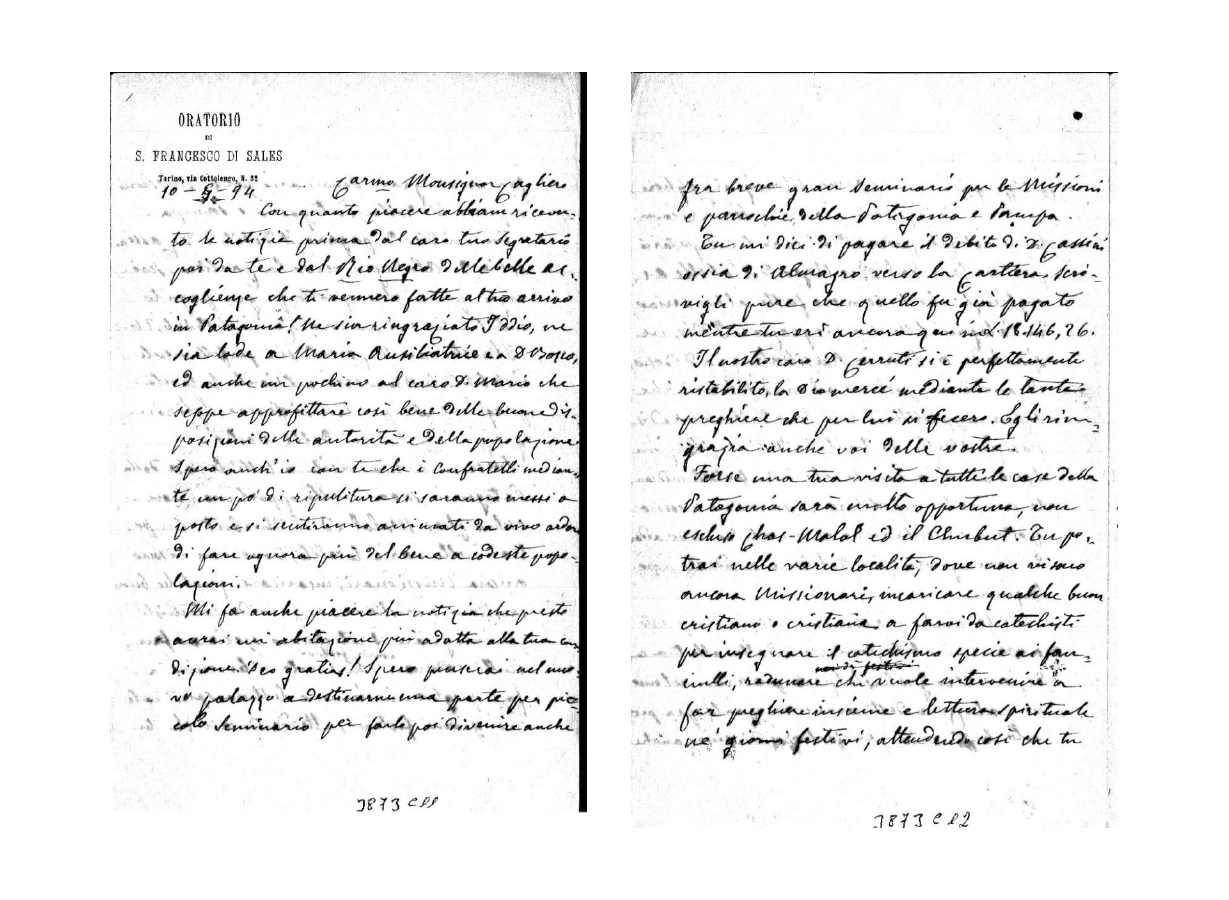 ORATORIO
DI
S. FRANCESCO DI SALES
Torino, via Cottolengo, N. 32
10 - 5 - 94
Carmo Monsignor Cagliero
Con quanto piacere abbiam ricevu-
to le notizie prima dal caro tuo Segretario
poi da te e dal Rio Negro delle belle ac-
coglienze che ti vennero fatte al tuo arrivo
in Patagonia! Ne sia ringraziato Iddio, ne
sia lode a Maria Ausiliatrice e a D Bosco,
ed anche un pochino al caro D. Mario che
seppe approfittare così bene delle buone dis-
posizioni delle autorità e della popolazione.
Spero anch'io con te che i Confratelli median-
te un po' di ripulitura si saranno messi a
posto e si sentiranno animati da vivo ardor
di fare ognora più del bene a codeste popo-
lazioni.
Mi fa anche piacere la notizia che presto
avrai un' abitazione più adatta alla tua con
dizione. Deo gratias! Spero penserai nel nuo-
vo palazzo a destinarne una parte per pic-
colo Seminario per farlo poi divenire anche
3873 C 11
fra breve gran Seminario per le Missioni
e parrochie della Patagonia e Pampa.
Tu mi dici di pagare il debito di D. Cassini
ossia di Almagro verso la Cartiera. Scri-
vigli pure che quello fu già pagato
mentre tu eri ancora qui in £ 18.146,26.
Il nostro caro D. Cerruti si è perfettamente
ristabilito, la Dio mercé mediante le tante
preghiere che per lui si fecero. Egli rin-
grazia anche voi delle vostre.
Forse una tua visita a tutte le case della
Patagonia sarà molto opportuna, non
escluso Chos-Malal ed il Chubut. Tu po-
trai nelle varie località, dove non vi sono
ancora Missionari, incaricare qualche buon
cristiano o cristiana a farvi da catechisti
per insegnare il catechismo specie ai fan-
ciulli, radunare chi vuole intervenire a
far preghiere insieme e lettura spirituale
ne' giorni festivi, attendendo così che tu
3873 C 12